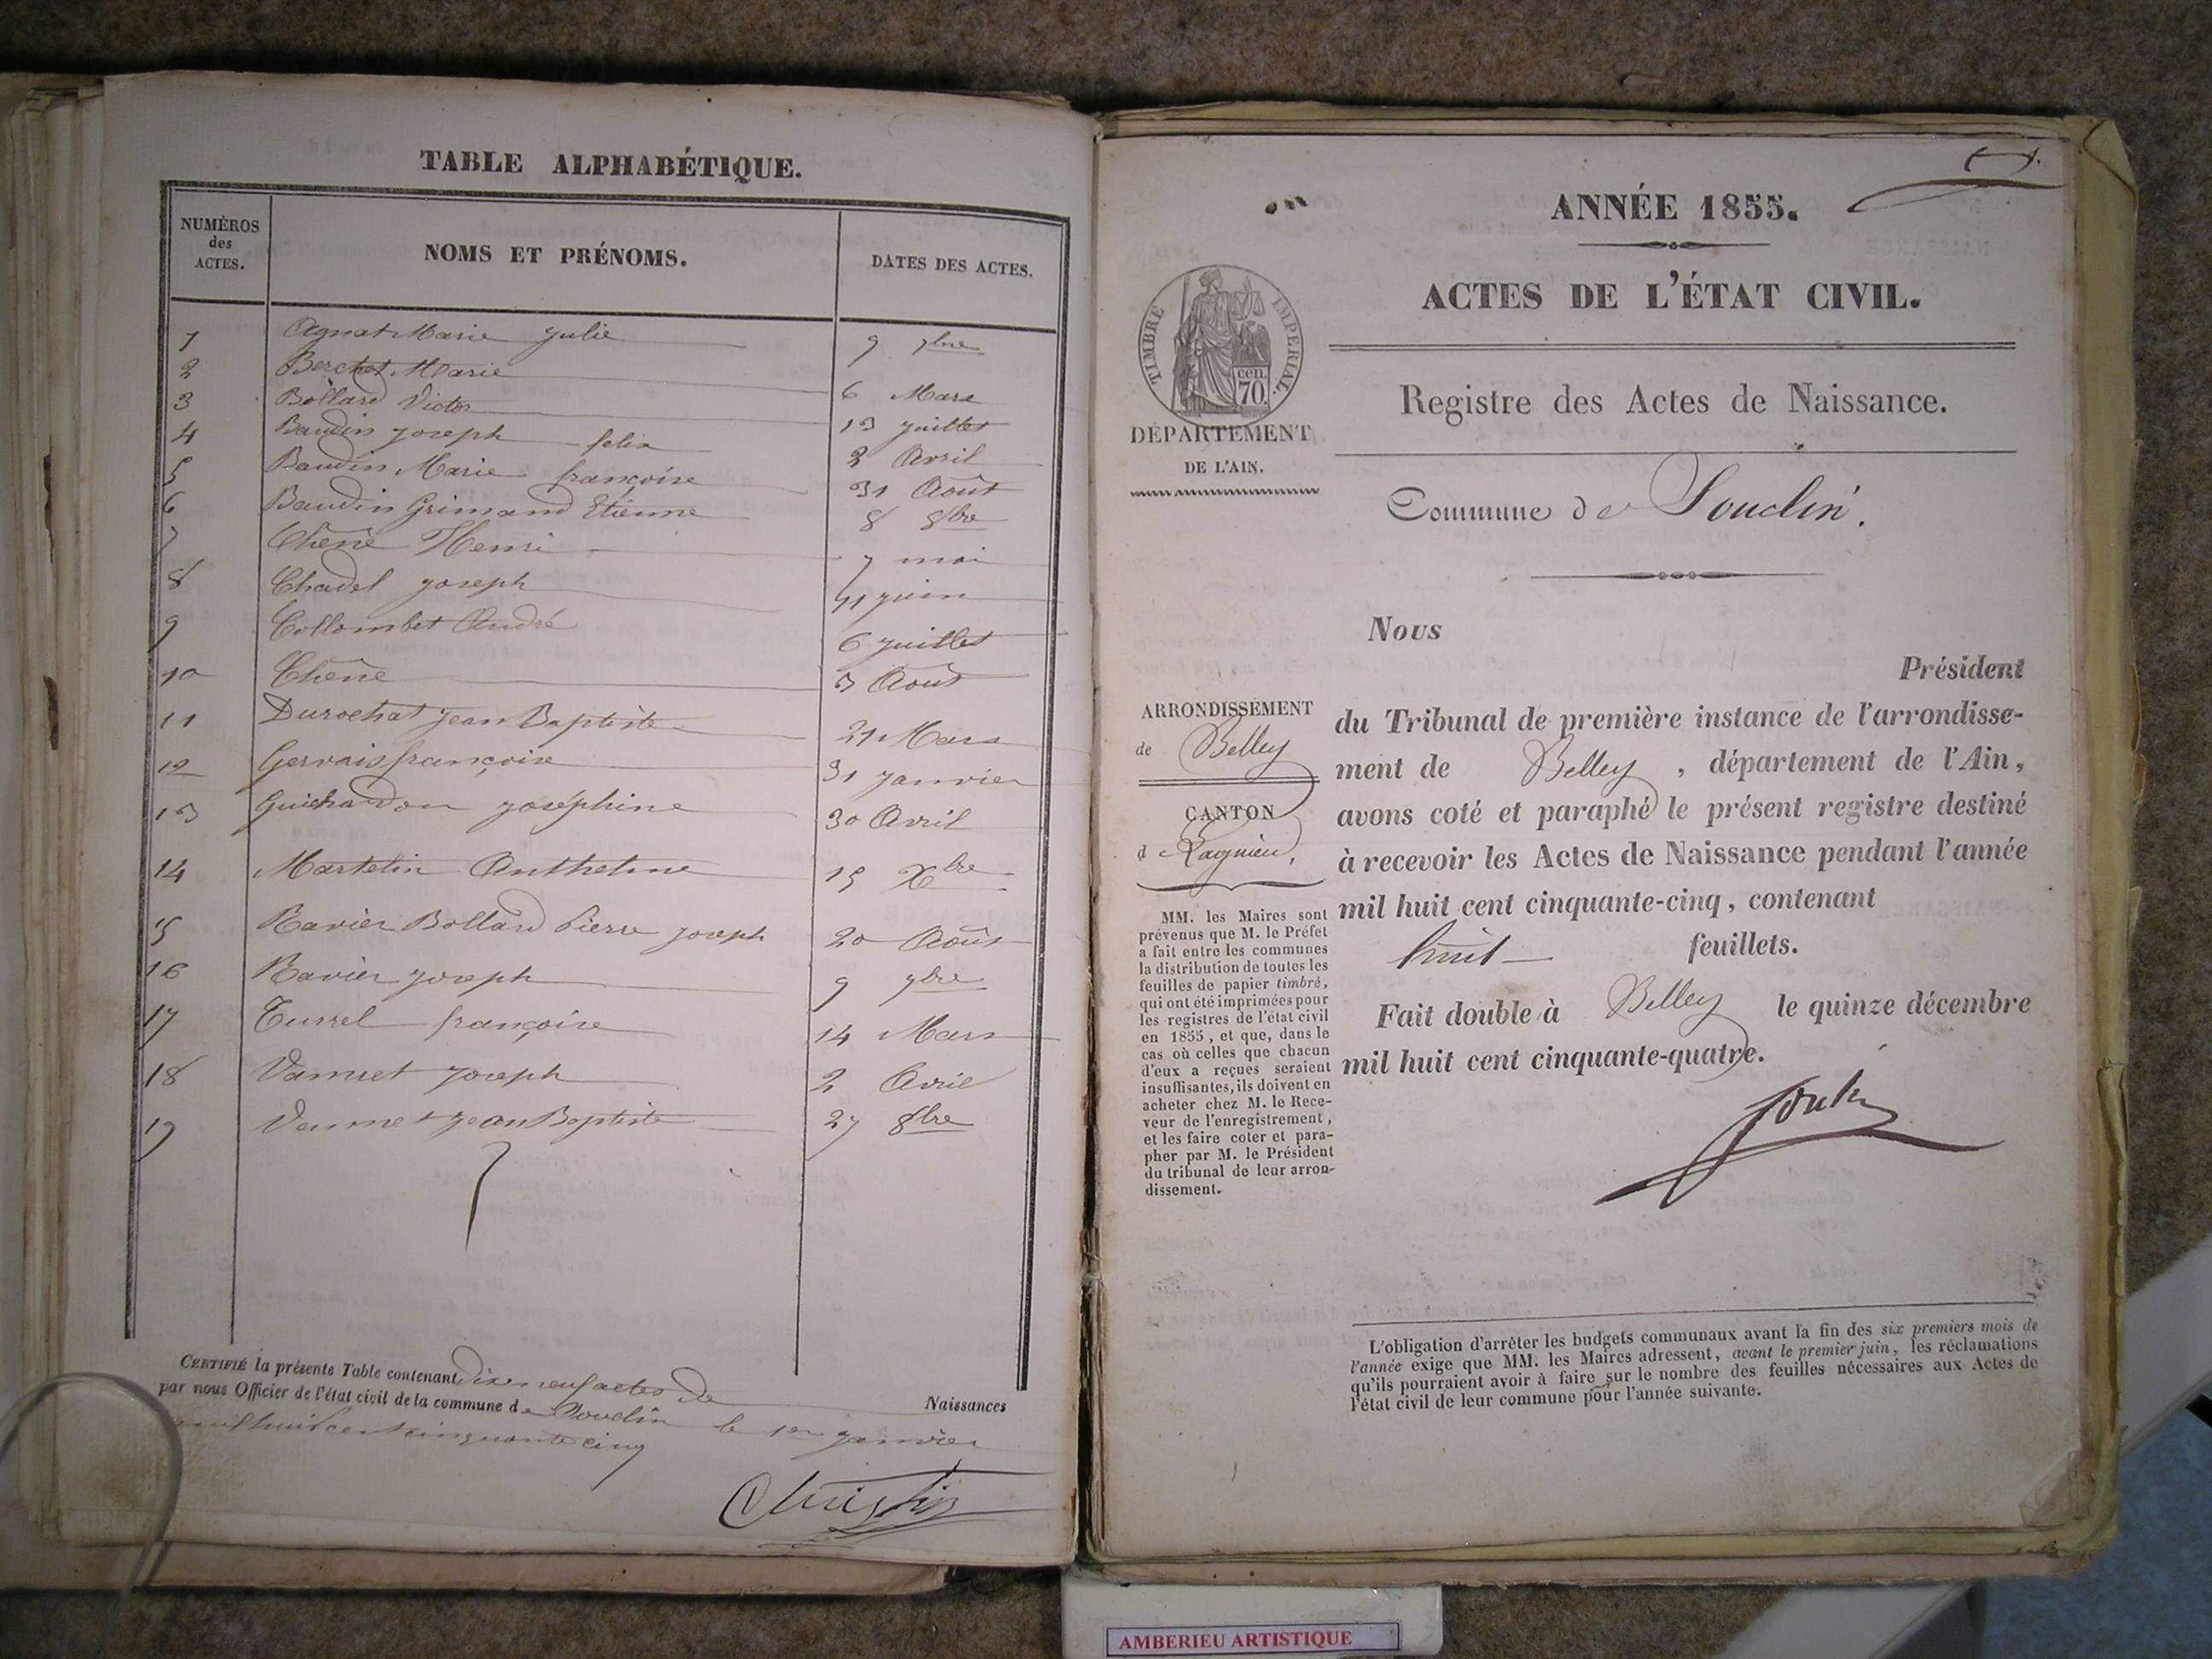 TABLE ALPHABÉTIQUE.
NUMÉROS des ACTES.
NOMS ET PRÉNOMS.
DATES DES ACTES.
1 Agnat Marie Julie 9 7bre
2 Berchet Marie 6 Mars
3 Bollard Victor 13 juillet
4 Baudin joseph felix 2 Avril
5 Baudin Marie françoise 31 Août
6 Baudin Grimand Etienne 8 8bre
7 Chêne Henri 7 mai
8 Chadel joseph 11 juin
9 Collombet André 6 juillet
10 Chêne 3 Août
11 Durochat jean Baptiste 21 Mars
12 Gervais françoise 31 janvier
13 Guichardon joséphine 30 Avril
14 Martelin Anthelme 15 Xbre
15 Ravier Bollard Pierre joseph 20 Août
16 Ravier joseph 9 7bre
17 Turrel françoise 14 Mars
18 Vamet joseph 2 Avril
19 Vamet jean Baptiste 27 8bre
CERTIFIÉ la présente Table contenant dixneuf actes de Naissances
par nous Officier de l'état civil de la commune de Souclin le 1er janvier
mil huit cent cinquante cinq
ANNÉE 1855.
ACTES DE L'ÉTAT CIVIL.
TIMBRE IMPERIAL.
cen.
70.
DÉPARTEMENT
DE L'AIN.
Registre des Actes de Naissance.
Commune de Souclin.
Nous
Président
du Tribunal de première instance de l'arrondisse-
ment de Belley, département de l'Ain,
avons coté et paraphé le présent registre destiné
à recevoir les Actes de Naissance pendant l'année
mil huit cent cinquante-cinq, contenant
huit feuillets.
Fait double à Belley le quinze décembre
mil huit cent cinquante-quatre.
ARRONDISSEMENT
de Belley
CANTON
d Lagnieu.
MM. les Maires sont
prévenus que M. le Préfet
a fait entre les communes
la distribution de toutes les
feuilles de papier timbré,
qui ont été imprimées pour
les registres de l'état civil
en 1855, et que, dans le
cas où celles que chacun
d'eux a reçues seraient
insuffisantes, ils doivent en
acheter chez M. le Rece-
veur de l'enregistrement,
et les faire coter et para-
pher par M. le Président
du tribunal de leur arron-
dissement.
L'obligation d'arrêter les budgets communaux avant la fin des six premiers mois de
l'année exige que MM. les Maires adressent, avant le premier juin, les réclamations
qu'ils pourraient avoir à faire sur le nombre des feuilles nécessaires aux Actes de
l'état civil de leur commune pour l'année suivante.
AMBERIEU ARTISTIQUE